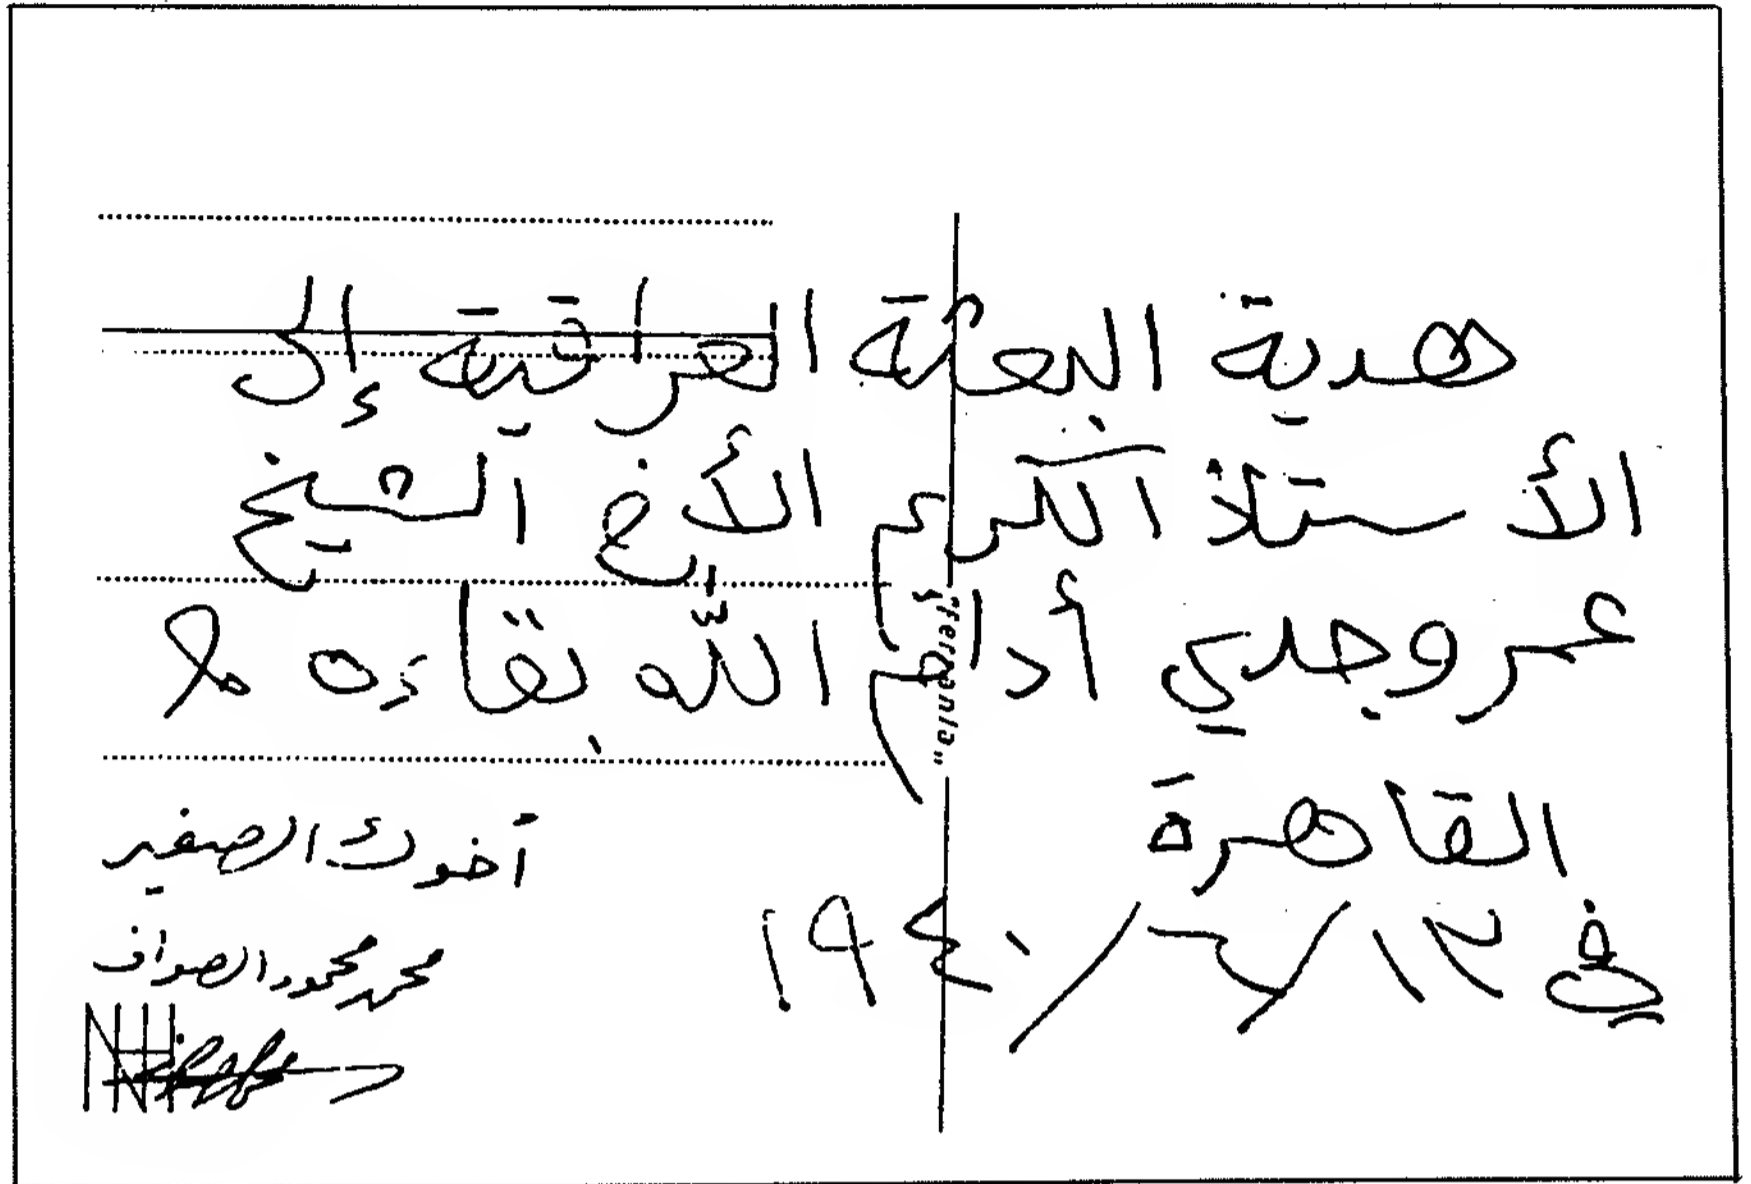 هدية البعثة العراقية إلى
الأستاذ الكريم الأخ الشيخ
عمر وجدي أدام الله بقاءه
"Ferrania"
القاهرة
في
أخوك الصغير
محمد محمود الصواف